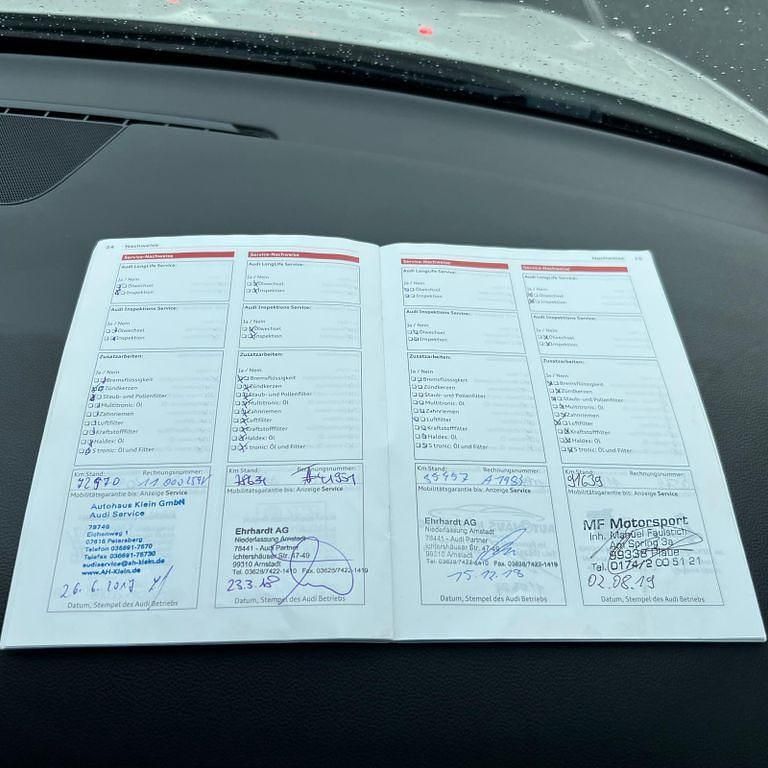 24 Nachweise
Service-Nachweise
Audi LongLife Service:
Ja / Nein
Ölwechsel
Inspektion
Audi Inspektions Service:
Ja / Nein
Ölwechsel
Inspektion
Zusatzarbeiten:
Ja / Nein
Bremsflüssigkeit
Zündkerzen
Staub- und Pollenfilter
Multitronic: Öl
Zahnriemen
Luftfilter
Kraftstofffilter
Haldex: Öl
S tronic: Öl und Filter
Km Stand: Rechnungsnummer:
72970
Mobilitätsgarantie bis: Anzeige Service
Autohaus Klein GmbH
Audi Service
78746
Eichenweg 1
07616 Petersberg
Telefon 036691-7570
audiservice@ah-klein.de
www.AH-Klein.de
26.6.2017
Datum, Stempel des Audi Betriebs
Service-Nachweise
Audi LongLife Service:
Ja / Nein
Ölwechsel
Inspektion
Audi Inspektions Service:
Ja / Nein
Ölwechsel
Inspektion
Zusatzarbeiten:
Ja / Nein
Bremsflüssigkeit
Zündkerzen
Staub- und Pollenfilter
Multitronic: Öl
Zahnriemen
Luftfilter
Kraftstofffilter
Haldex: Öl
S tronic: Öl und Filter
Km Stand: Rechnungsnummer:
Mobilitätsgarantie bis: Anzeige Service
Ehrhardt AG
Niederlassung Arnstadt
78441 - Audi Partner
Ichtershäuser Str. 47-49
99310 Arnstadt
Tel. 03628/7422-1410 Fax. 03628/7422-1419
23.3.18
Datum, Stempel des Audi Betriebs
Service-Nachweise
Audi LongLife Service:
Ja / Nein
Ölwechsel
Inspektion
Audi Inspektions Service:
Ja / Nein
Ölwechsel
Inspektion
Zusatzarbeiten:
Ja / Nein
Bremsflüssigkeit
Zündkerzen
Staub- und Pollenfilter
Multitronic: Öl
Zahnriemen
Luftfilter
Kraftstofffilter
Haldex: Öl
S tronic: Öl und Filter
Km Stand: Rechnungsnummer:
Mobilitätsgarantie bis: Anzeige Service
Ehrhardt AG
Niederlassung Arnstadt
78441 - Audi Partner
Ichtershäuser Str. 47-49
99310 Arnstadt
Tel. 03628/7422-1410 Fax. 03628/7422-1419
15.12.18
Datum, Stempel des Audi Betriebs
Nachweise 25
Service-Nachweise
Audi LongLife Service:
Ja / Nein
Ölwechsel
Inspektion
Audi Inspektions Service:
Ja / Nein
Ölwechsel
Inspektion
Zusatzarbeiten:
Ja / Nein
Bremsflüssigkeit
Zündkerzen
Staub- und Pollenfilter
Multitronic: Öl
Zahnriemen
Luftfilter
Kraftstofffilter
Haldex: Öl
S tronic: Öl und Filter
Km Stand: Rechnungsnummer:
91639
Mobilitätsgarantie bis: Anzeige Service
MF Motorsport
Inh. Manuel Faulstich
Am Spring 3a
99338 Plaue
Tel. 0174/2 00 51 21
02.08.19
Datum, Stempel des Audi Betriebs